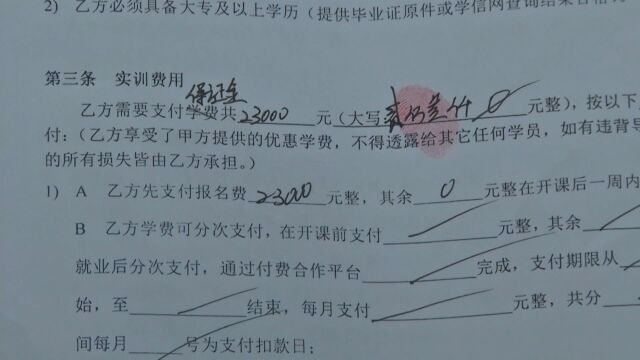 2) 乙方必须具备大专及以上学历(提供毕业证原件或学信网查询结果
第三条 实训费用
保证金
乙方需要支付学费共23000元(大写贰万叁仟0元整),按以下
付:(乙方享受了甲方提供的优惠学费,不得透露给其它任何学员,如有违背导
的所有损失皆由乙方承担。)
1) A 乙方先支付报名费23000元整,其余0元整在开课后一周内
B 乙方学费可分次支付,在开课前支付 元整,其余
就业后分次支付,通过付费合作平台 完成,支付期限从
始,至 结束,每月支付 元整,共分
间每月 号为支付扣款日;